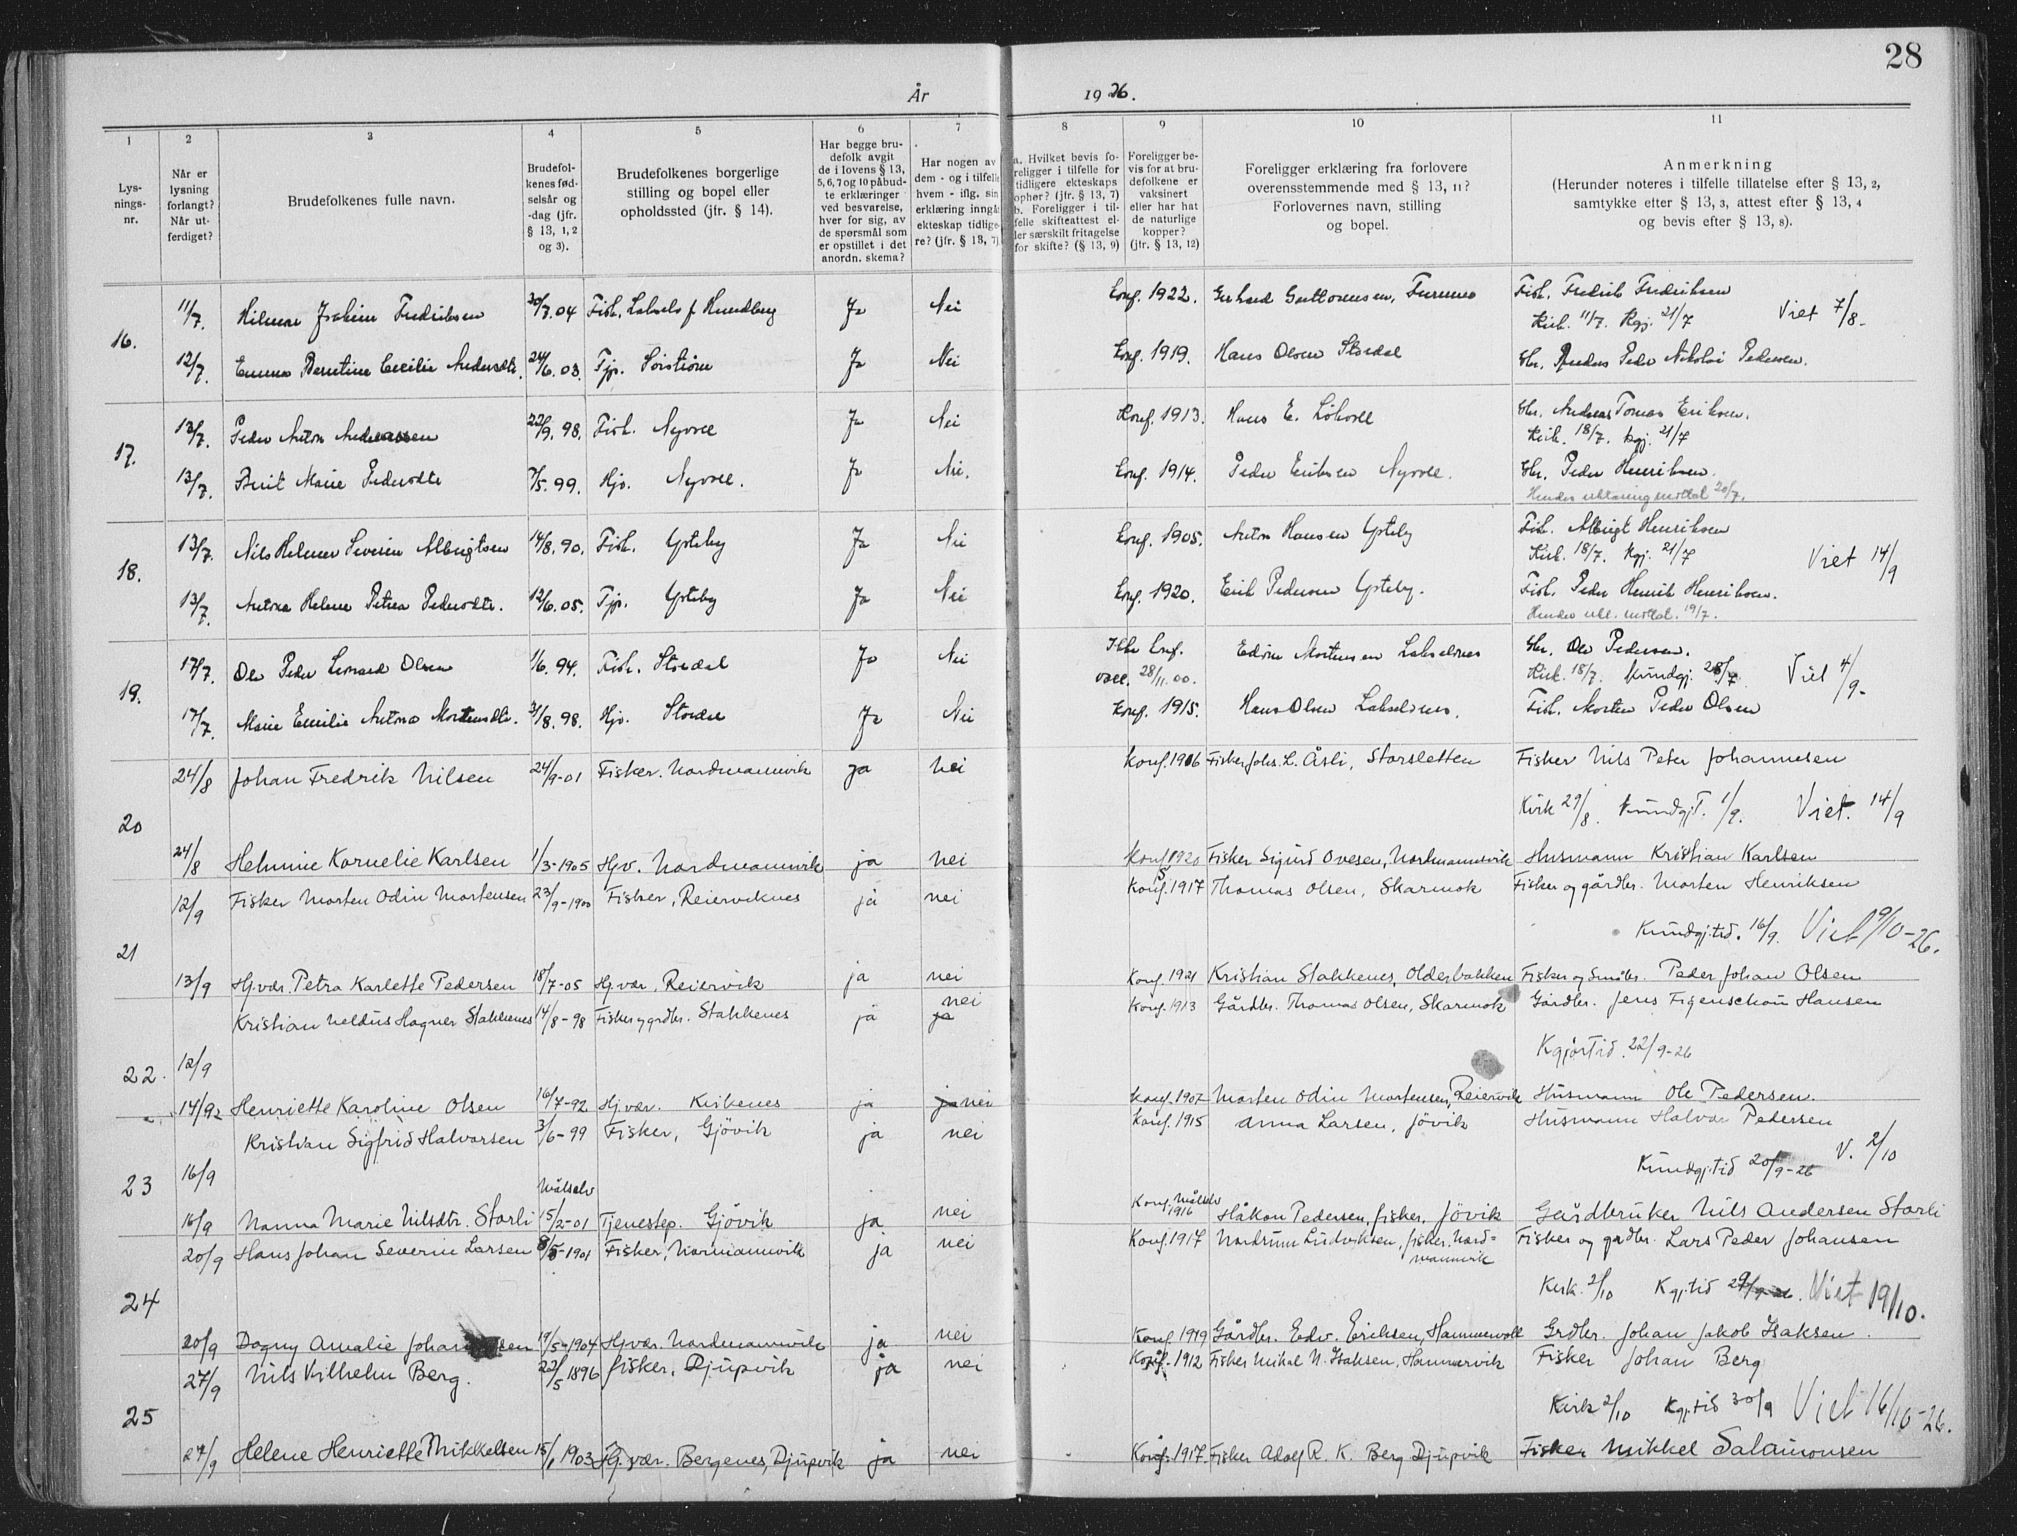 28
År 1926.
1 2 3 4 5 6 7 8 9 10 11
Lys-
nings-
nr.
Når er
lysning
forlangt?
Når ut-
ferdiget?
Brudefolkenes fulle navn.
Brudefol-
kenes fød-
selsår og
-dag (jfr.
§ 13, 1, 2
og 3).
Brudefolkenes borgerlige
stilling og bopel eller
opholdssted (jfr. § 14).
Har begge bru-
defolk avgit
de i lovens § 13,
5, 6, 7 og 10 påbud-
te erklæringer
ved besvarelse,
hver for sig, av
de spørsmål som
er opstillet i det
anordn. skema?
Har nogen av
dem - og i tilfelle
hvem - iflg. sin
erklæring inngå
ekteskap tidlige-
re? (jfr. § 13, 7)
a. Hvilket bevis fo-
religger i tilfelle for
tidligere ekteskaps
ophør? (jfr. § 13, 7)
b. Foreligger i til-
felle skifteattest el-
ler særskilt fritagelse
for skifte? (§ 13, 9)
Foreligger be-
vis for at bru-
defolkene er
vaksinert
eller har hat
de naturlige
kopper?
(jfr. § 13, 12)
Foreligger erklæring fra forlovere
overensstemmende med § 13, 11?
Forlovernes navn, stilling
og bopel.
Anmerkning
(Herunder noteres i tilfelle tillatelse efter § 13, 2,
samtykke efter § 13, 3, attest efter § 13, 4
og bevis efter § 13, 8).
16.
11/7. Hilmar Joakim Fredriksen 30/7.04 Fisk. Ja Nei Konf. 1922. Fisk. Fredrik Fredriksen
Kirk. 11/7. Kgj. 21/7 Viet 7/8-
12/7. Emma Berntine Cecilie Andersdtr. 24/6.03. Tjp. Ja Nei Konf. 1919. Hans Olsen Stordal Peder Nikolai Pedersen.
17.
13/7. Peder Anton Andreassen 22/9.98. Fisk. Nyvoll Ja Nei Konf. 1913. Hans E. Løkvoll Gbr. Andreas Tomas Eriksen.
Kirk. 18/7. kgj. 21/7
13/7. Berit Marie Pedersdtr 7/5.99. Hjv. Nyvoll. Ja Nei. Konf. 1914. Peder Eriksen Nyvoll. Gbr. Peder Henriksen.
20/7.
18.
13/7. Nils Helmer Severin Albrigtsen 14/8.90. Fisk. Ysteby Ja Nei Konf. 1905. Anton Hansen Ysteby Fisk. Albrigt Henriksen
Kirk. 18/7. Kgj. 21/7 Viet 14/9
13/7. Antona Helene Petrea Pedersdtr. 12/6.05. Tjp. Ysteby Ja Nei Konf. 1920. Erik Pedersen Ysteby. Fisk. Peder Henrik Henriksen.
19/7.
19.
17/7. Ole Peder Leonard Olsen 1/6.94. Fisk. Stordal Ja Nei Ikke konf. Edvin Mortensen Lakselvnes Gbr. Ole Pedersen.
vacc. 28/11.00. Kirk. 18/7. Kundgj. 28/7 Viet 4/9-
17/7. Marie Emilie Antona Mortensdtr. 31/8.98. Hjv. Stordal Ja Nei Konf. 1915. Hans Olsen Lakselvnes. Fisk. Morten Peder Olsen
20
24/8 Johan Fredrik Nilsen 24/9-01 Fisker. Nordmannvik ja nei Konf. 1916 Fisker Johs. L. Åsli, Storsletten Fisker Nils Peter Johannesen
Kirk 29/8. Kundgj.t. 1/9. Viet. 14/9
24/8 Helmine Kornelie Karlsen 1/3-1905 Hjv. Nordmannvik ja nei Konf 1920 Fisker Sigurd Ovesen, Nordmannsvik Husmann Kristian Karlsen
21
12/9 Fisker Morten Odin Mortensen 23/9-1900 Fisker, Reierviknes ja nei Konf. 1917 Thomas Olsen, Skarmok Fisker og gårdbr. Morten Henriksen
Kundgj.tid. 16/9. Viet 9/10-26.
13/9 Hj.vær. Petra Karlette Pedersen 18/7-05 Hj.vær. Reiervik ja nei Konf. 1921 Kristian Stakkenes, Olderbakken Fisker og Småbr. Peder Johan Olsen
22.
12/9 Kristian Neldus Hagner Stakkenes 14/8-98 Fisker og grdbr. Stakkenes ja nei ja Konf. 1913 Gårdbr. Thomas Olsen, Skarmok Gårdbr. Jens Figenschou Hansen
KgjørTid. 22/9-26
14/92 Henriette Karoline Olsen 16/7-92 Hj.vær. Kirkenes ja ja nei Konf. 1907 Morten Odin Mortensen, Reiervik Husmann Ole Pedersen.
23
16/9 Kristian Sigfrid Halvorsen 3/6-99 Fisker, Gjövik ja nei Konf. 1915 Anna Larsen, Jövik Husmann Halvar Pedersen
Kundgj.tid 20/9-26 V. 2/10
Målselv
16/9 Nanna Marie Nilsdtr. Storli 15/2-01 Tjenestep. Gjövik ja nei Konf. Målselv 1916 Håkon Pedersen, fisker, Jövik Gårdbruker Nils Andersen Storli
24
20/9 Hans Johan Severin Larsen 8/5-1901 Fisker, Normannvik ja nei Konf. 1917 Nordrum Ludviksen, fisker. Nord=
mannvik Fisker og grdbr. Lars Peder Johansen
Kirk. 2/10 Kgj.tid 29/9-26. Viet 19/10.
20/9 Dagny Amalie Johansen 19/5-1904 Hj.vær. Nordmannvik ja nei Konf. 1919 Gårdbr. Edv. Eriksen, Hammervoll Grdbr. Johan Jakob Isaksen.
25
27/9 Nils Vilhelm Berg. 22/5 1896 fisker, Djupvik ja nei Konf. 1912 Fisker Mikal N. Isaksen, Hammarvik Fisker Johan Berg
Kirk 2/10 Kgj.tid 30/9 Viet 16/10-26.
27/9 Helene Henriette Mikkelsen 15/1 1903 Hj.vær. Bergenes, Djupvik ja nei Konf. 1917. Fisker Adolf R. K. Berg Djupvik Fisker Mikkel Salamonsen